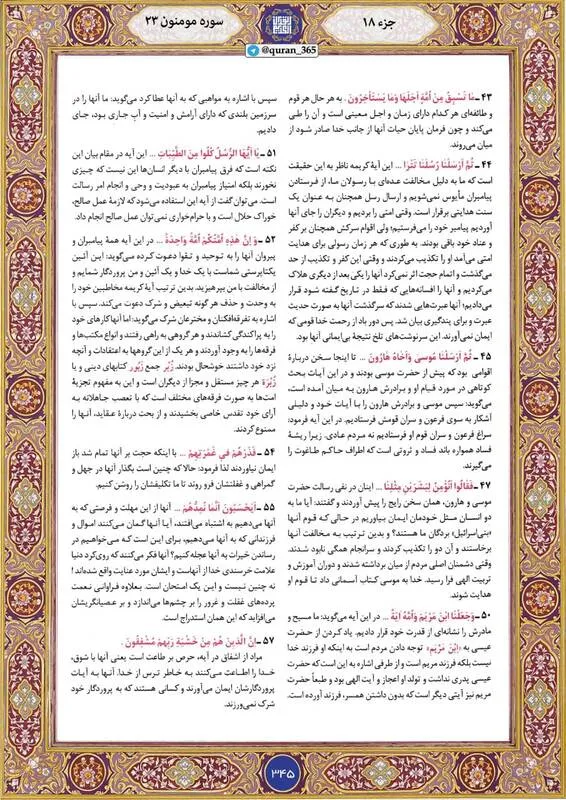 جزء ۱۸
سوره مومنون ۲۳
@quran_365
۴۳ ـ مَا تَسْبِقُ مِنْ أُمَّةٍ أَجَلَهَا وَمَا يَسْتَأْخِرُونَ . به هر حال هر قوم
و طائفه‌ای هر کدام دارای زمان و اجل معینی است و آن را طی
می‌کند و چون فرمان پایان حیات آنها از جانب خدا صادر شود از
میان می‌روند.
۴۴ ـ ثُمَّ أَرْسَلْنَا رُسُلَنَا تَتْرَا ... این آیهٔ کریمه ناظر به این حقیقت
است که ما به دلیل مخالفت عده‌ای با رسولان ما، از فرستادن
پیامبران مأیوس نمی‌شویم و ارسال رسل همچنان به عنوان یک
سنت هدایتی برقرار است. وقتی امتی را بردیم و دیگران را جای آنها
آوردیم پیامبر خود را می‌فرستیم؛ ولی اقوام سرکش همچنان بر کفر
و عناد خود باقی بودند. به طوری که هر زمان رسولی برای هدایت
امتی می‌آمد او را تکذیب می‌کردند و وقتی این کفر و تکذیب از حد
می‌گذشت و اتمام حجت اثر نمی‌کرد آنها را یکی بعد از دیگری هلاک
می‌کردیم و آنها را افسانه‌هایی که فقط در تاریخ گفته شود قرار
می‌دادیم؛ آنها عبرت‌هایی شدند که سرگذشت آنها به صورت حدیث
عبرت و برای پندگیری بیان شد. پس دور باد از رحمت خدا قومی که
ایمان نمی‌آورند. این سرنوشت‌های تلخ نتیجهٔ بی‌ایمانی آنها بود.
۴۵ ـ ثُمَّ أَرْسَلْنَا مُوسَى وَأَخَاهُ هَارُونَ ... تا اینجا سخن دربارهٔ
اقوامی بود که پیش از حضرت موسی بودند و در این آیات بحث
کوتاهی در مورد قیام او و برادرش هارون به میان آمده است،
می‌گوید: سپس موسی و برادرش هارون را با آیات خود و دلیلی
آشکار به سوی فرعون و سران قومش فرستادیم. در این آیه فرمود:
سراغ فرعون و سران قوم او فرستادیم نه مردم عادی، زیرا ریشهٔ
فساد همواره باند فساد و ثروتی است که اطراف حاکم طاغوت را
می‌گیرند.
۴۷ ـ فَقَالُوا أَنُؤْمِنُ لِبَشَرَيْنِ مِثْلِنَا ... اینان در نفی رسالت حضرت
موسی و هارون، همان سخن رایج را پیش آوردند و گفتند: آیا ما به
دو انسان مثل خودمان ایمان بیاوریم در حالی که قوم آنها
«بنی‌اسرائیل» بردگان ما هستند؟ و بدین ترتیب به مخالفت آنها
برخاستند و آن دو را تکذیب کردند و سرانجام همگی نابود شدند.
وقتی دشمنان اصلی مردم از میان برداشته شدند و دوران آموزش و
تربیت الهی فرا رسید. خدا به موسی کتاب آسمانی داد تا قوم او
هدایت شوند.
۵۰ ـ وَجَعَلْنَا ابْنَ مَرْيَمَ وَأُمَّهُ آيَةً ... در این آیه می‌گوید: ما مسیح و
مادرش را نشانه‌ای از قدرت خود قرار دادیم. یاد کردن از حضرت
عیسی به «ابْنَ مَرْيَمَ» توجه دادن مردم است به اینکه او فرزند خدا
نیست بلکه فرزند مریم است و از طرفی اشاره به این است که حضرت
عیسی پدری نداشت و تولد او اعجاز و آیت الهی بود و طبعاً حضرت
مریم نیز آیتی دیگر است که بدون داشتن همسر، فرزند آورده است.
سپس با اشاره به مواهبی که به آنها عطا کرد می‌گوید: ما آنها را در
سرزمین بلندی که دارای آرامش و امنیت و آب جاری بود، جای
دادیم.
۵۱ ـ يَا أَيُّهَا الرُّسُلُ كُلُوا مِنَ الطَّيِّبَاتِ ... این آیه در مقام بیان این
نکته است که فرق پیامبران با دیگر انسان‌ها این نیست که چیزی
نخورند بلکه امتیاز پیامبران به عبودیت و وحی و انجام امر رسالت
است. می‌توان گفت از آیه این استفاده می‌شود که لازمهٔ عمل صالح،
خوراک حلال است و با حرام‌خواری نمی‌توان عمل صالح انجام داد.
۵۲ ـ وَإِنَّ هَذِهِ أُمَّتُكُمْ أُمَّةً وَاحِدَةً ... در این آیه همهٔ پیامبران و
پیروان آنها را به توحید و تقوا دعوت کرده می‌گوید: این آئین
یکتاپرستی شماست با یک خدا و یک آئین و من پروردگار شمایم و
از مخالفت با من بپرهیزید. بدین ترتیب آیهٔ کریمه مخاطبین خود را
به وحدت و حذف هر گونه تبعیض و شرک دعوت می‌کند. سپس با
اشاره به تفرقه‌افکنان و مخترعان شرک می‌گوید: اما آنها کارهای خود
را به پراکندگی کشاندند و هر گروهی به راهی رفتند و انواع مکتب‌ها و
فرقه‌ها را به وجود آوردند و هر یک از این گروهها به اعتقادات و آنچه
نزد خود داشتند خوشحال بودند. زُبُر جمع زَبُور کتابهای دینی و یا
زُبْرَة هر چیز مستقل و مجزا از دیگران است و این به مفهوم تجزیهٔ
امت‌ها به صورت فرقه‌های مختلف است که با تعصب جاهلانه به
آرای خود تقدس خاصی بخشیدند و از بحث دربارهٔ عقاید، آنها را
ممنوع کردند.
۵۴ ـ فَذَرْهُمْ فِي غَمْرَتِهِمْ ... با اینکه حجت بر آنها تمام شد باز
ایمان نیاوردند لذا فرمود: حالا که چنین است بگذار آنها در جهل و
گمراهی و غفلتشان فرو روند تا ما تکلیفشان را روشن کنیم.
۵۵ ـ أَيَحْسَبُونَ أَنَّمَا نُمِدُّهُمْ ... آنها از این مهلت و فرصتی که به
آنها می‌دهیم به اشتباه می‌افتند، آیا آنها گمان می‌کنند اموال و
فرزندانی که به آنها می‌دهیم، برای این است که می‌خواهیم در
رساندن خیرات به آنها عجله کنیم؟ آنها فکر می‌کنند که روی‌کرد دنیا
علامت خرسندی خدا از آنهاست و ایشان مورد عنایت واقع شده‌اند!
نه چنین نیست و این یک امتحان است. بعلاوه فراوانی نعمت
پرده‌های غفلت و غرور را بر چشم‌ها می‌اندازد و بر عصیانگریشان
می‌افزاید که این همان استدراج است.
۵۷ ـ إِنَّ الَّذِينَ هُمْ مِنْ خَشْيَةِ رَبِّهِمْ مُشْفِقُونَ .
مراد از اشفاق در آیه، حرص بر طاعت است یعنی آنها با شوق،
خدا را اطاعت می‌کنند به خاطر ترس از خدا. آنها به آیات
پروردگارشان ایمان می‌آورند و کسانی هستند که به پروردگار خود
شرک نمی‌ورزند.
۳۴۵